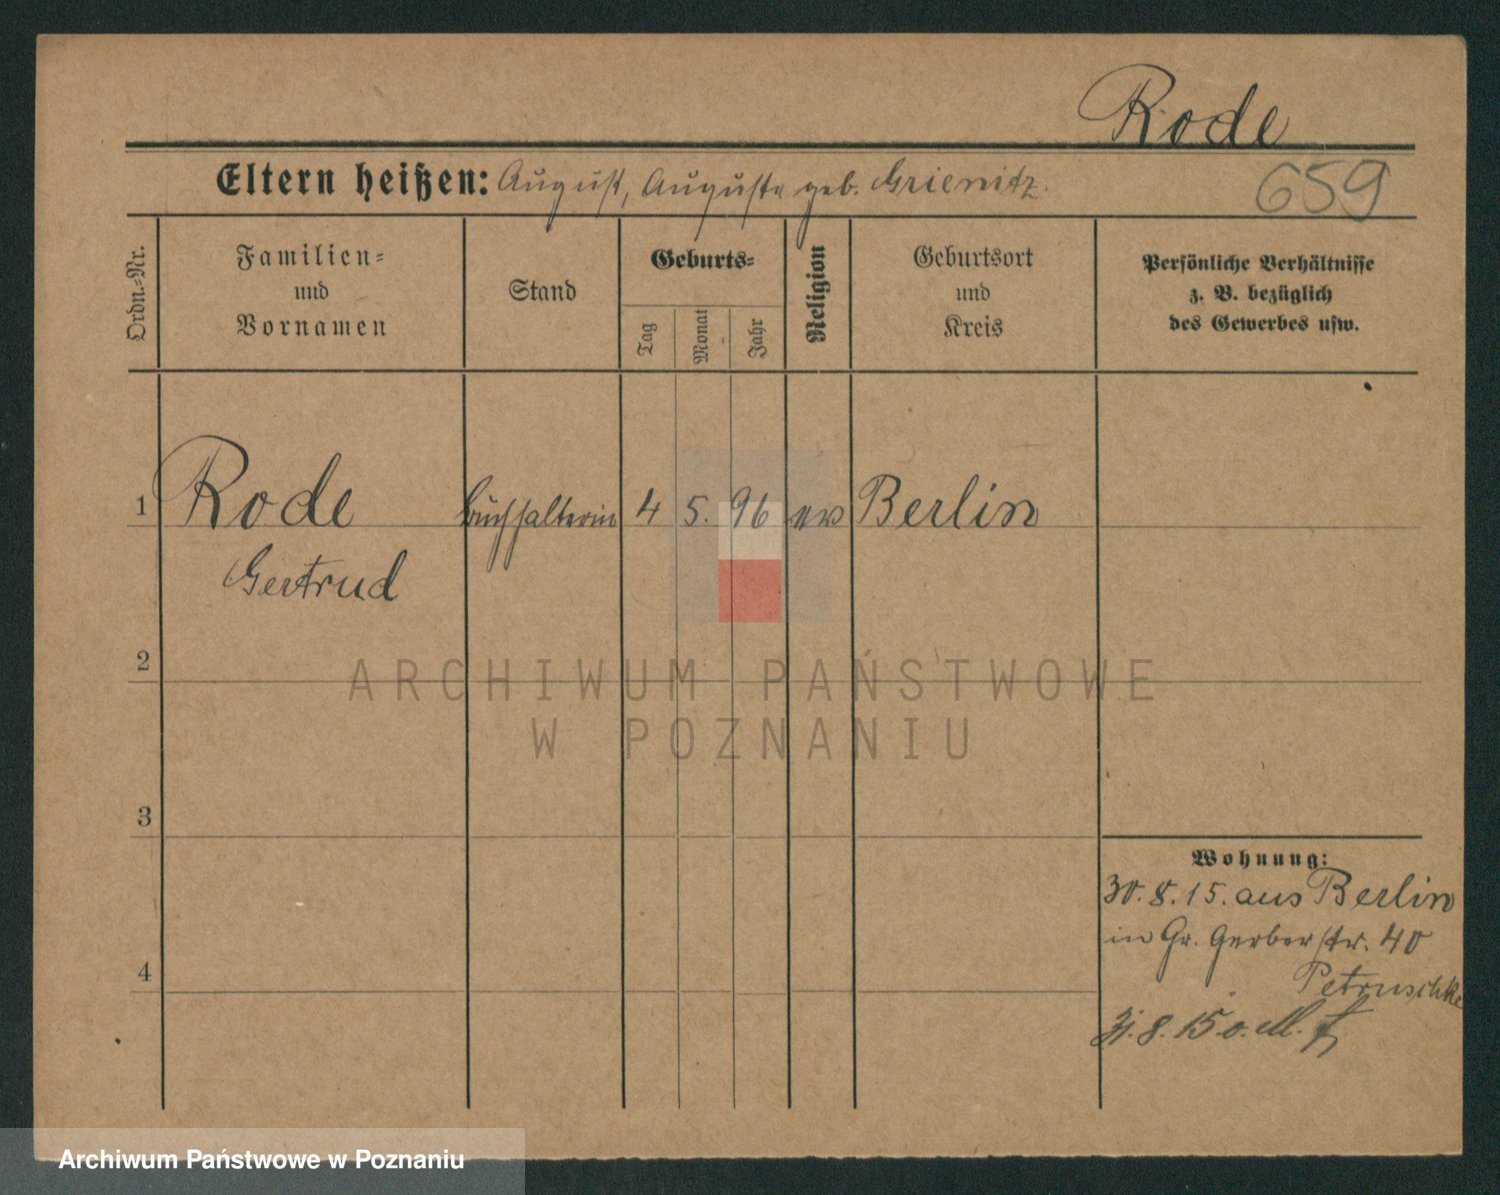 Rode
Eltern heißen: August, Auguste geb. Grienitz.
659
Ordn.-Nr.
Familien-
und
Vornamen
Stand
Geburts-
Tag
Monat
Jahr
Religion
Geburtsort
und
Kreis
Persönliche Verhältnisse
z. B. bezüglich
des Gewerbes usw.
1 Rode Buchhalterin 4 5. 96 ev Berlin
Gertrud
2
3
4
Wohnung:
30.8.15. aus Berlin
in Gr. Gerberstr. 40
Petruschke
31.8.15 o. M.
ARCHIWUM PAŃSTWOWE
W POZNANIU
Archiwum Państwowe w Poznaniu